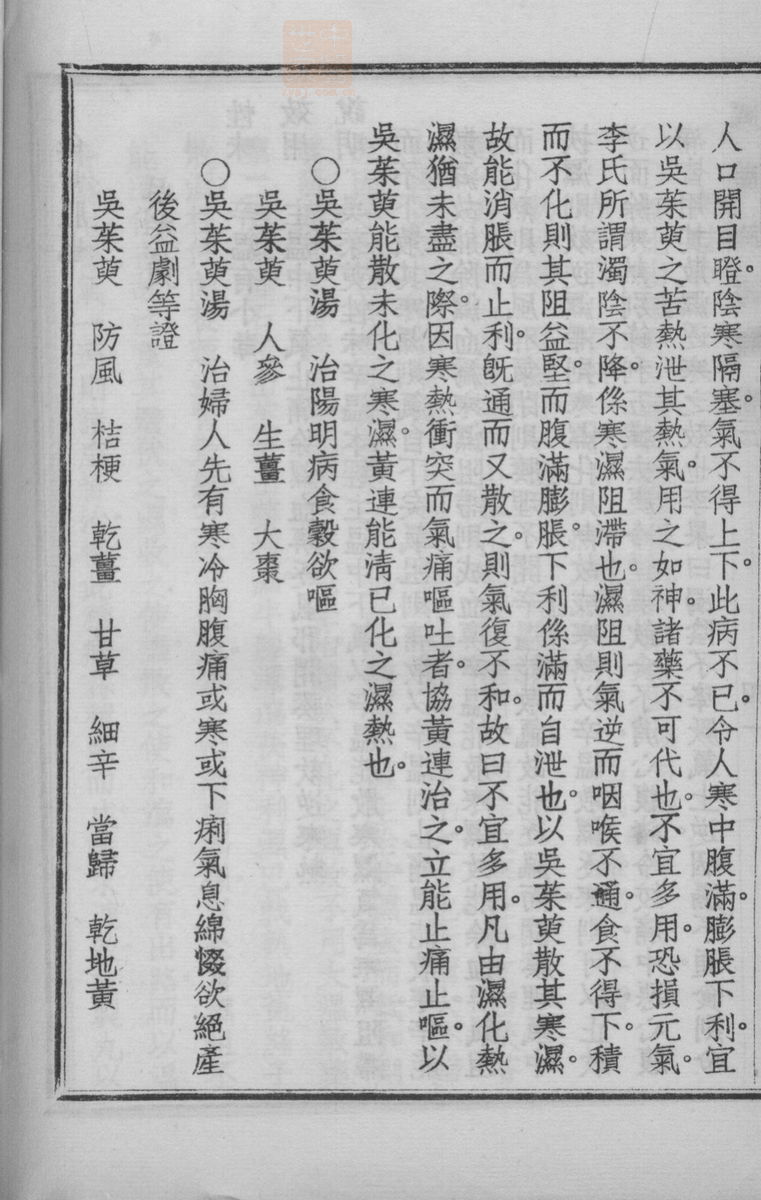 人口開目瞪。陰寒隔塞。氣不得上下。此病不已。令人寒中腹滿。膨脹下利。宜
以吳茱萸之苦熱泄其熱氣。用之如神。諸藥不可代也。不宜多用。恐損元氣。
李氏所謂濁陰不降。係寒濕阻滯也。濕阻則氣逆而咽喉不通。食不得下。積
而不化則其阻益堅。而腹滿膨脹。下利係滿而自泄也。以吳茱萸散其寒濕。
故能消脹而止利。旣通而又散之。則氣復不和。故曰不宜多用。凡由濕化熱
濕猶未盡之際。因寒熱衝突而氣痛嘔吐者。協黃連治之。立能止痛止嘔。以
吳茱萸能散未化之寒濕。黃連能淸已化之濕熱也。
○吳茱萸湯　治陽明病食穀欲嘔
吳茱萸　人參　生薑　大棗
○吳茱萸湯　治婦人先有寒冷胸腹痛或寒或下痢氣息綿惙欲絕產
後益劇等證
吳茱萸　防風　桔梗　乾薑　甘草　細辛　當歸　乾地黃